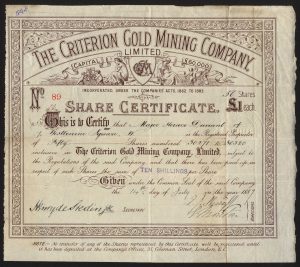 THE CRITERION GOLD MINING COMPANY,
LIMITED.
CAPITAL £60,000
INCORPORATED UNDER THE COMPANIES ACTS, 1862 TO 1883.
No. 89
50 Shares
SHARE CERTIFICATE.
£1 each.
This is to Certify that Major
of
Square W is the Registered Proprietor
of Fifty Shares numbered 30271 to 30320
in The Criterion Gold Mining Company, Limited, subject to the
Regulations of the said Company, and that there has been paid up in
respect of such Shares the sum of TEN SHILLINGS per Share
Given under the Common Seal of the said Company
the 14th day of July 1887
NOTE.—No transfer of any of the Shares represented by this Certificate will be registered until
it has been deposited at the Company's Offices, 31 Street, London, E.C.